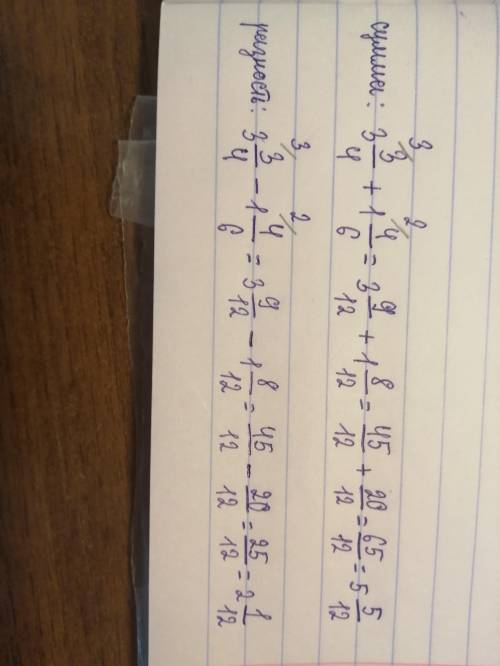 сумма: 3 3/4 + 1 4/6 = 3 9/12 + 1 8/12 = 45/12 + 20/12 = 65/12 = 5 5/12
разность: 3 3/4 - 1 4/6 = 3 9/12 - 1 8/12 = 45/12 - 20/12 = 25/12 = 2 1/12